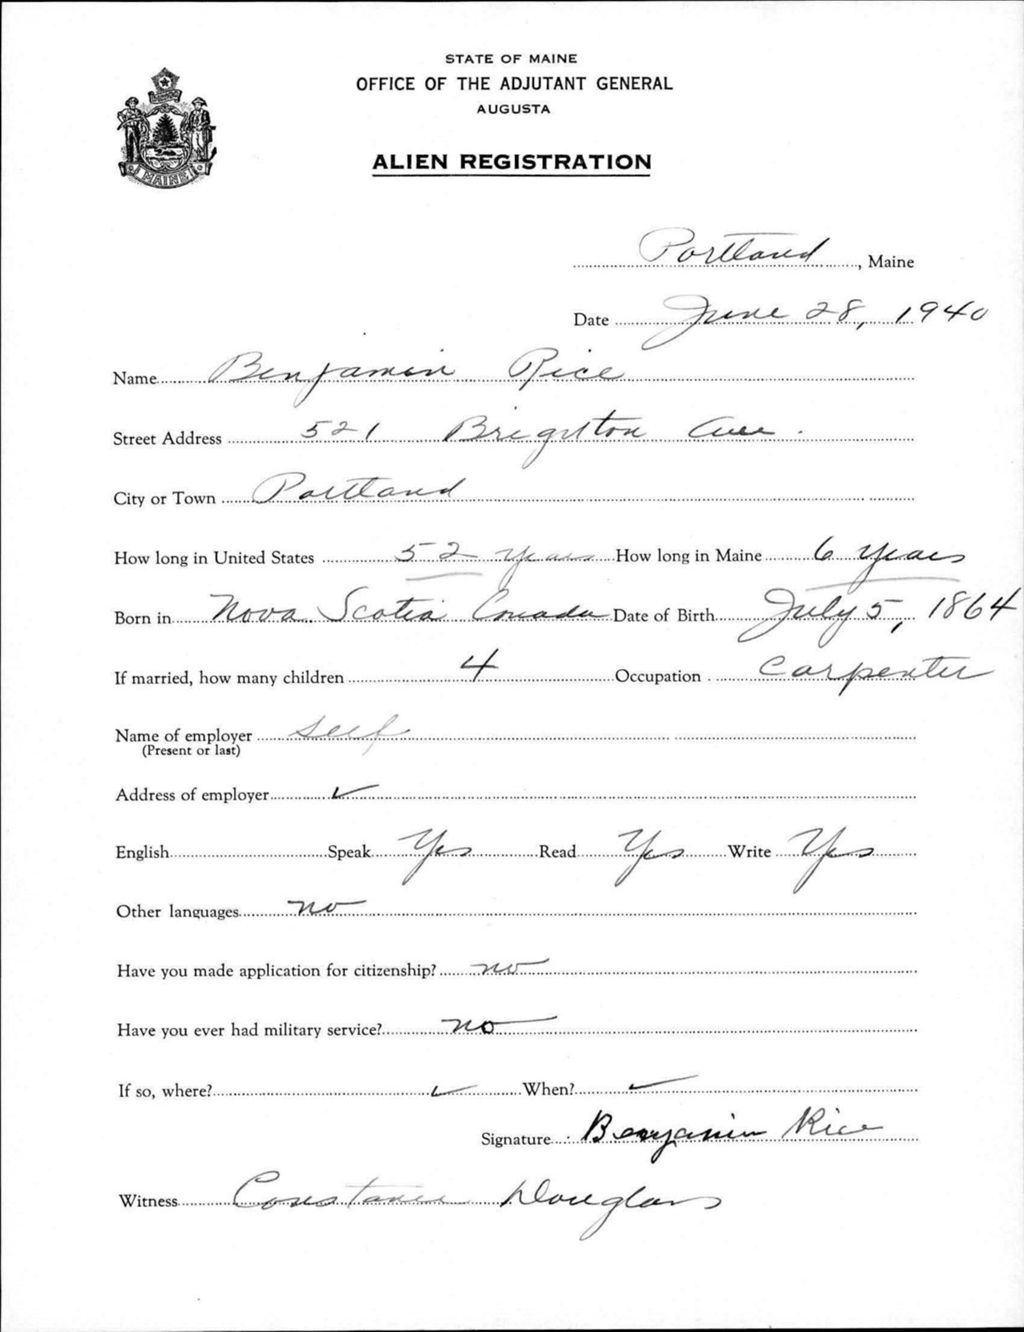 STATE OF MAINE
OFFICE OF THE ADJUTANT GENERAL
AUGUSTA
ALIEN REGISTRATION
MAINE
Portland, Maine
Date June 28, 1940
Name Benjamin Rice
Street Address 521 Brighton Ave.
City or Town Portland
How long in United States 52 years How long in Maine 6 years
Born in Nova Scotia Canada Date of Birth July 5, 1864
If married, how many children 4 Occupation Carpenter
Name of employer self
(Present or last)
Address of employer ✓
English Speak Yes Read Yes Write Yes
Other languages no
Have you made application for citizenship? no
Have you ever had military service? no
If so, where? ✓ When? ✓
Signature Benjamin Rice
Witness Constance Douglass